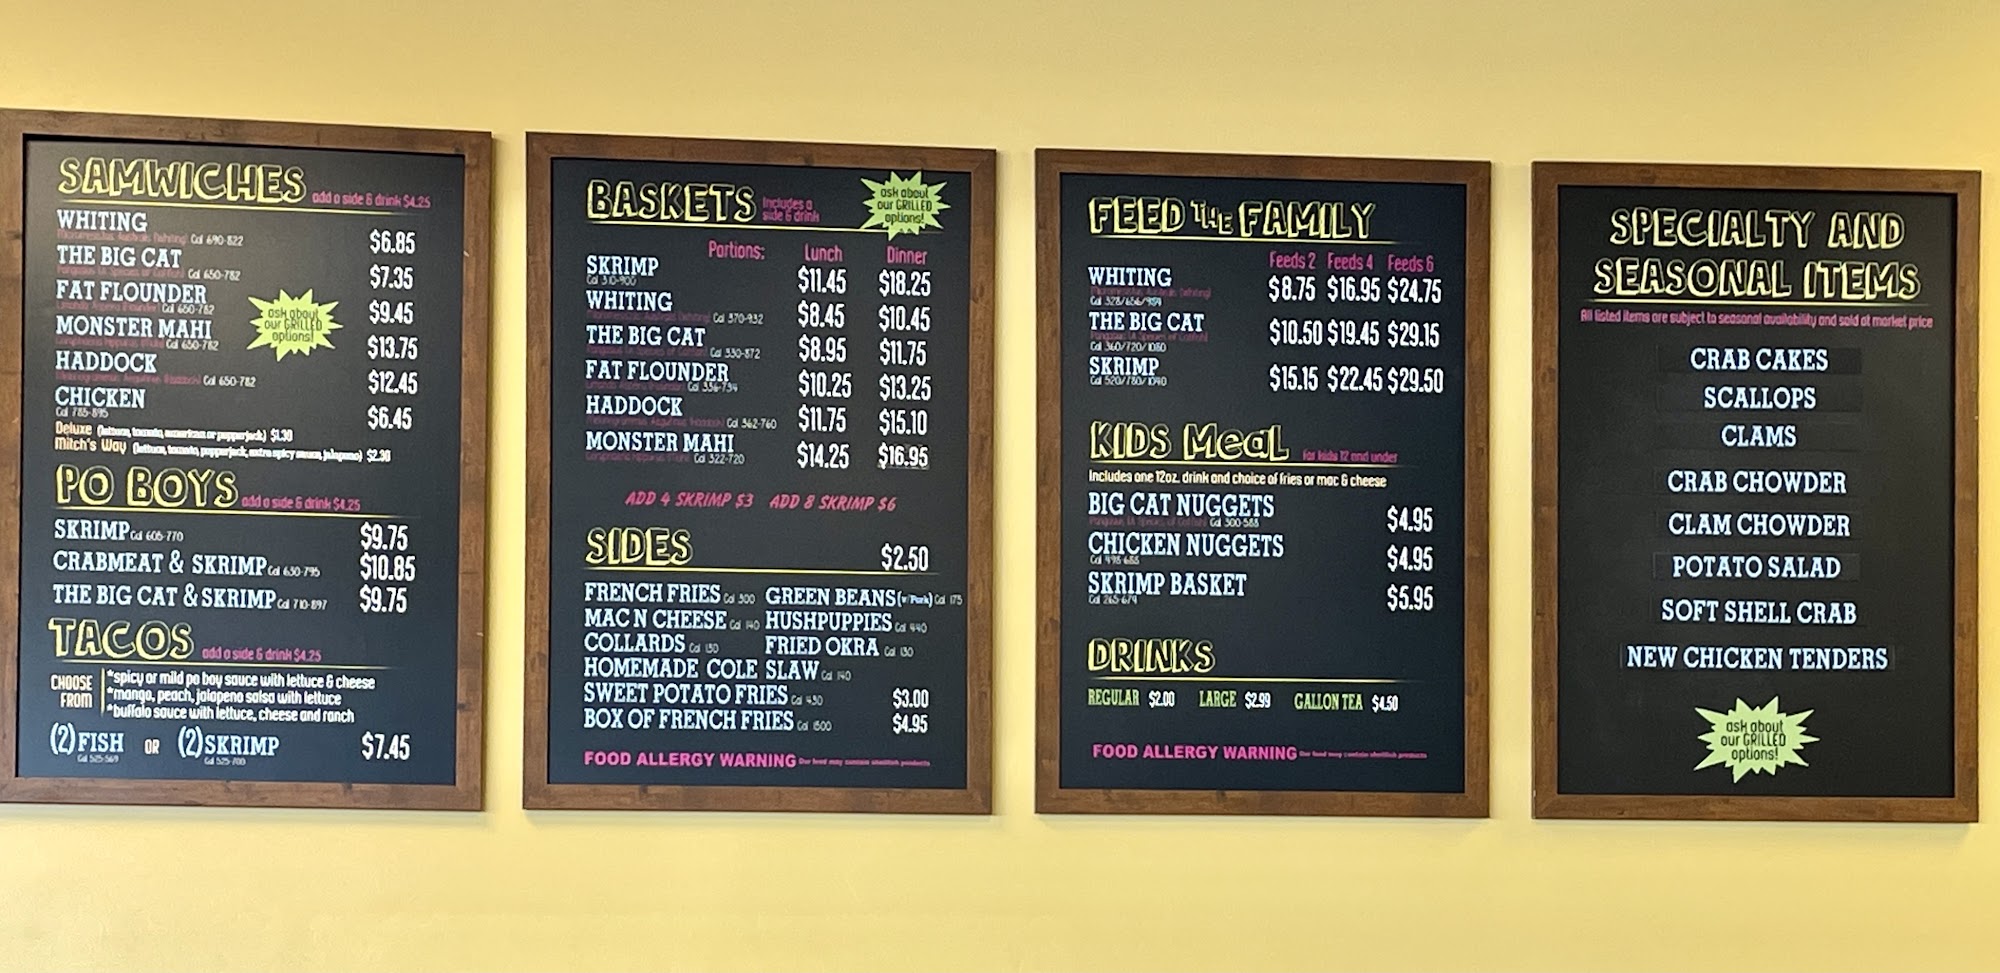 SAMWICHES add a side & drink $4.25
WHITING $6.85
Cal 690-822
THE BIG CAT $7.35
Cal 650-782
FAT FLOUNDER $9.45
Cal 650-782
MONSTER MAHI $13.75
Cal 650-782
HADDOCK $12.45
Cal 650-782
CHICKEN $6.45
Cal 785-895
Deluxe (lettuce, tomato, american or pepperjack) $1.30
Mitch's Way (lettuce, tomato, pepperjack, extra spicy sauce, jalapeno) $2.30
ask about
our GRILLED
options!
PO BOYS add a side & drink $4.25
SKRIMP Cal 605-770 $9.75
CRABMEAT & SKRIMP Cal 630-795 $10.85
THE BIG CAT & SKRIMP Cal 710-897 $9.75
TACOS add a side & drink $4.25
CHOOSE FROM
*spicy or mild po boy sauce with lettuce & cheese
*mango, peach, jalapeno salsa with lettuce
*buffalo sauce with lettuce, cheese and ranch
(2) FISH OR (2) SKRIMP $7.45
Cal 525-569 Cal 525-700
BASKETS Includes a side & drink
ask about
our GRILLED
options!
Portions: Lunch Dinner
SKRIMP $11.45 $18.25
Cal 310-900
WHITING $8.45 $10.45
Cal 370-932
THE BIG CAT $8.95 $11.75
Cal 330-872
FAT FLOUNDER $10.25 $13.25
Cal 336-734
HADDOCK $11.75 $15.10
Cal 362-760
MONSTER MAHI $14.25 $16.95
Cal 322-720
ADD 4 SKRIMP $3 ADD 8 SKRIMP $6
SIDES $2.50
FRENCH FRIES Cal 300 GREEN BEANS (w/Pork) Cal 175
MAC N CHEESE Cal 140 HUSHPUPPIES Cal 440
COLLARDS Cal 150 FRIED OKRA Cal 130
HOMEMADE COLE SLAW Cal 140
SWEET POTATO FRIES Cal 430 $3.00
BOX OF FRENCH FRIES Cal 1500 $4.95
FOOD ALLERGY WARNING Our food may contain shellfish products
FEED THE FAMILY
Feeds 2 Feeds 4 Feeds 6
WHITING $8.75 $16.95 $24.75
Cal 328/656/984
THE BIG CAT $10.50 $19.45 $29.15
Cal 360/720/1080
SKRIMP $15.15 $22.45 $29.50
Cal 520/780/1040
KIDS Meal for kids 12 and under
Includes one 12oz. drink and choice of fries or mac & cheese
BIG CAT NUGGETS $4.95
Cal 300-588
CHICKEN NUGGETS $4.95
Cal 495-685
SKRIMP BASKET $5.95
Cal 265-679
DRINKS
REGULAR $2.00 LARGE $2.99 GALLON TEA $4.50
FOOD ALLERGY WARNING Our food may contain shellfish products
SPECIALTY AND
SEASONAL ITEMS
All listed items are subject to seasonal availability and sold at market price
CRAB CAKES
SCALLOPS
CLAMS
CRAB CHOWDER
CLAM CHOWDER
POTATO SALAD
SOFT SHELL CRAB
NEW CHICKEN TENDERS
ask about
our GRILLED
options!